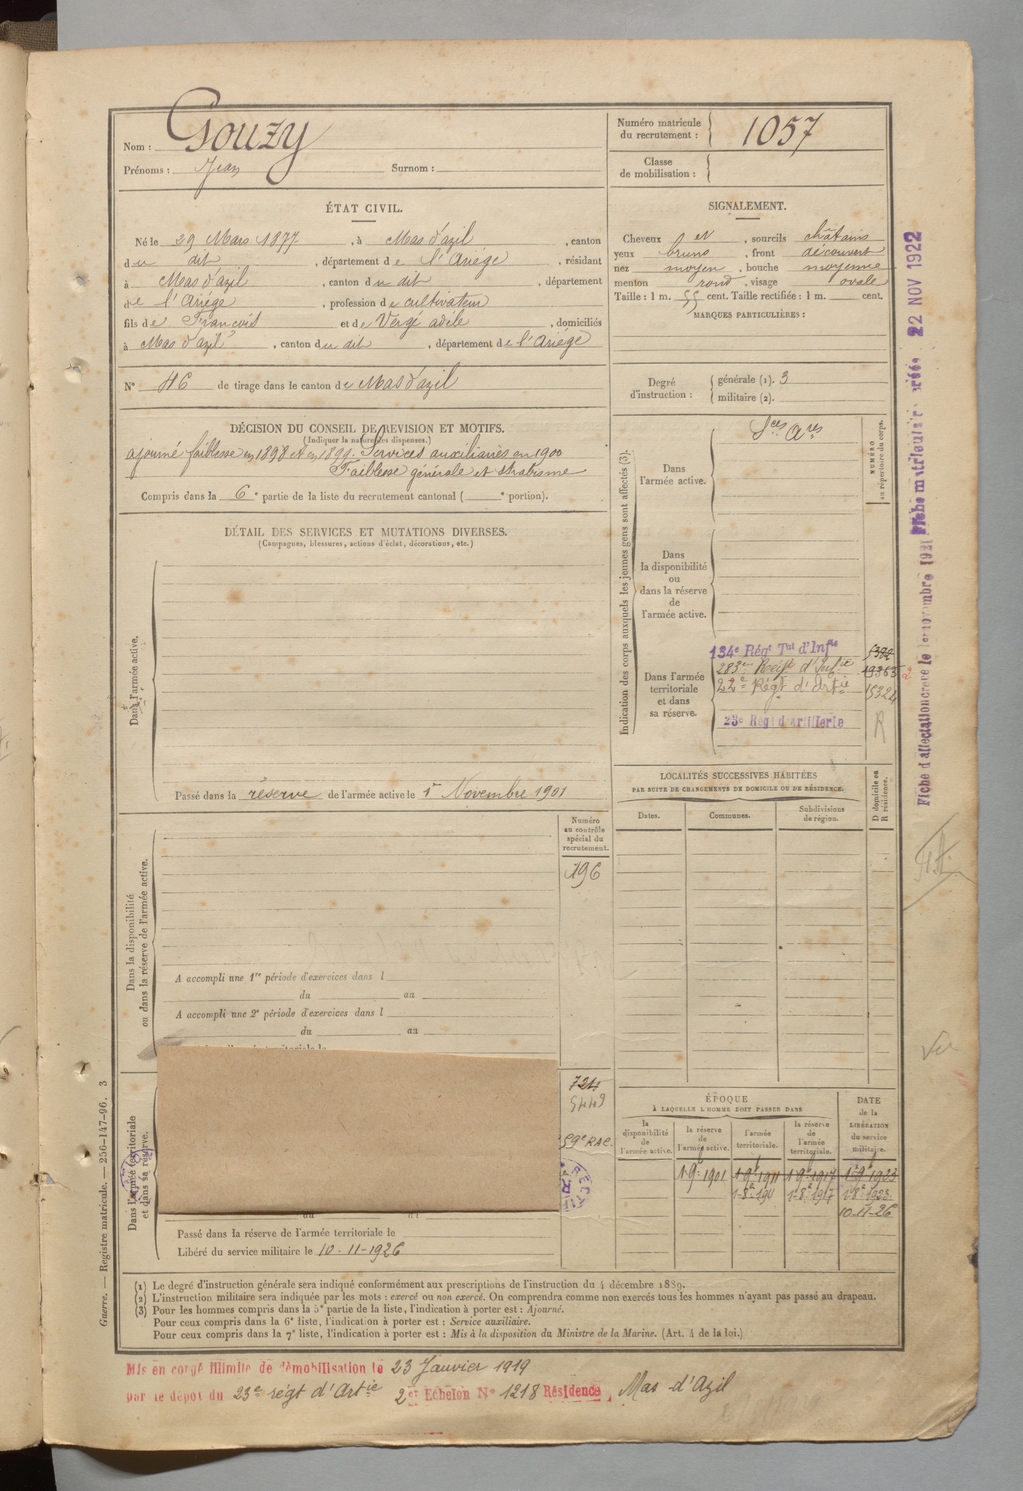 Nom : Gouzy
Prénoms : Jean Surnom :
Numéro matricule du recrutement : 1057
Classe de mobilisation :
ÉTAT CIVIL.
Né le 29 Mars 1877, à Mas d'azil, canton
du dit, département de l'Ariège, résidant
à Mas d'azil, canton du dit, département
de l'Ariège, profession de cultivateur
fils de François et de Vergé adèle, domiciliés
à Mas d'azil, canton du dit, département de l'Ariège
N° 46 de tirage dans le canton de Mas d'azil
SIGNALEMENT.
Cheveux et, sourcils châtains
yeux bruns, front découvert
nez moyen, bouche moyenne
menton rond, visage ovale
Taille : 1 m. 55 cent. Taille rectifiée : 1 m. cent.
MARQUES PARTICULIÈRES :
Degré d'instruction : générale (1). 3
militaire (2).
DÉCISION DU CONSEIL DE REVISION ET MOTIFS.
(Indiquer la nature des dispenses.)
ajourné faiblesse en 1898 et en 1899. Services auxiliaires en 1900
Faiblesse générale et strabisme
Compris dans la 6e partie de la liste du recrutement cantonal ( e portion).
DÉTAIL DES SERVICES ET MUTATIONS DIVERSES.
(Campagnes, blessures, actions d'éclat, décorations, etc.)
Dans l'armée active.
Passé dans la réserve de l'armée active le 1er Novembre 1901
Indication des corps auxquels les jeunes gens sont affectés (3).
NUMÉRO au répertoire du corps.
Dans l'armée active.
Sces Ares
Dans la disponibilité ou dans la réserve de l'armée active.
Dans l'armée territoriale et dans sa réserve.
134e Régt Tal d'Infie
283e Régt d'Infie 19363
22e Régt d'Artie 15324
23e Régt d'Artillerie R
LOCALITÉS SUCCESSIVES HABITÉES
PAR SUITE DE CHANGEMENTS DE DOMICILE OU DE RÉSIDENCE.
Dates. Communes. Subdivisions de région. D domicile ou R résidence.
Numéro au contrôle spécial du recrutement.
196
Dans la disponibilité ou dans la réserve de l'armée active.
A accompli une 1re période d'exercices dans l
du au
A accompli une 2e période d'exercices dans l
du au
Dans l'armée territoriale et dans sa réserve.
724
5449
59e RAC
Passé dans la réserve de l'armée territoriale le
Libéré du service militaire le 10-11-1926
ÉPOQUE
À LAQUELLE L'HOMME DOIT PASSER DANS
la disponibilité de l'armée active. la réserve de l'armée active. l'armée territoriale. la réserve de l'armée territoriale.
DATE de la LIBÉRATION du service militaire.
1-9bre 1901 1-9bre 1911 1-9bre 1917 1-9bre 1923
1-8e 1911 1-8e 1917 1-8e 1923
10-11-26
(1) Le degré d'instruction générale sera indiqué conformément aux prescriptions de l'instruction du 4 décembre 1889.
(2) L'instruction militaire sera indiquée par les mots : exercé ou non exercé. On comprendra comme non exercés tous les hommes n'ayant pas passé au drapeau.
(3) Pour les hommes compris dans la 5e partie de la liste, l'indication à porter est : Ajourné.
Pour ceux compris dans la 6e liste, l'indication à porter est : Service auxiliaire.
Pour ceux compris dans la 7e liste, l'indication à porter est : Mis à la disposition du Ministre de la Marine. (Art. 4 de la loi.)
Mis en congé illimité de démobilisation le 23 Janvier 1919
par le dépôt du 23e régt d'Artie 2e Echelon N° 1218 Résidence, Mas d'Azil
Guerre. — Registre matricule. — 256-147-96. 3
Fiche d'affectation créée le 1er novembre 1921 Fiche matriculaire créée 22 NOV 1922